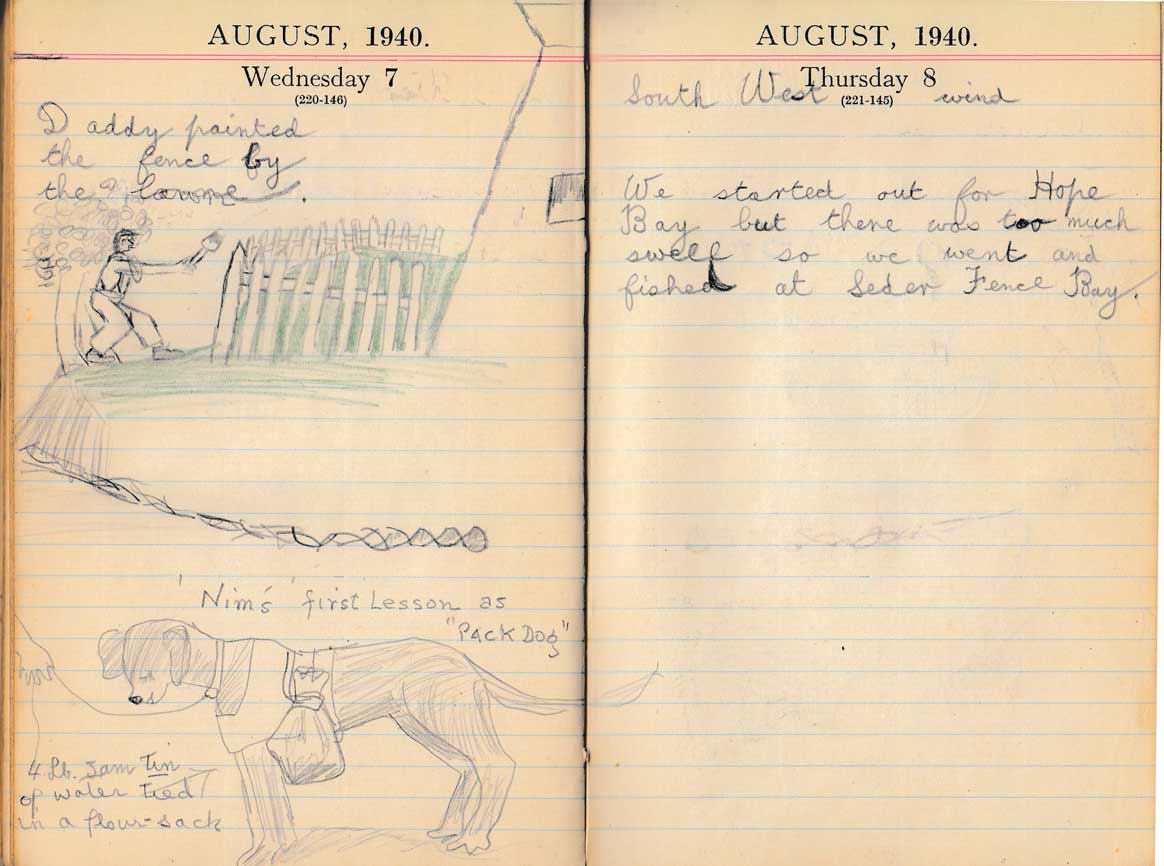 AUGUST, 1940.
Wednesday 7
(220-146)
Daddy painted
the fence by
the lawne.
'Nim's' first Lesson as
"Pack Dog"
4 Lb. Jam Tin
of water Tied
in a flour-sack
AUGUST, 1940.
Thursday 8
(221-145)
South West wind
We started out for Hope
Bay but there was too much
swell so we went and
fished at Seder Fence Bay.